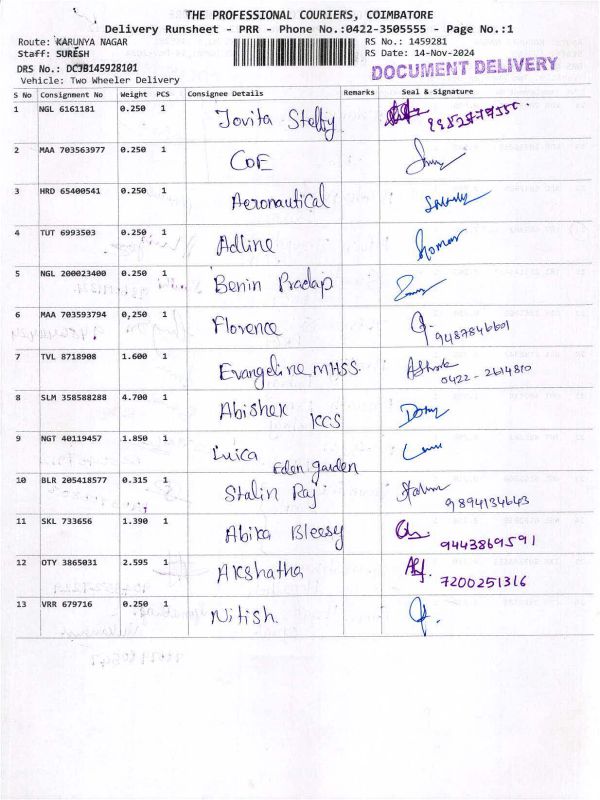 THE PROFESSIONAL COURIERS, COIMBATORE
Delivery Runsheet - PRR - Phone No.:0422-3505555 - Page No.:1
Route: KARUNYA NAGAR RS No.: 1459281
Staff: SURESH RS Date: 14-Nov-2024
DRS No.: DCJB145928101 DOCUMENT DELIVERY
Vehicle: Two Wheeler Delivery
S No Consignment No Weight PCS Consignee Details Remarks Seal & Signature
1 NGL 6161181 0.250 1 Jovita Stelly
2 MAA 703563977 0.250 1 COE
3 HRD 65400541 0.250 1 Aeronautical
4 TUT 6993503 0.250 1 Adline
5 NGL 200023400 0.250 1 Benin Pradap
6 MAA 703593794 0,250 1 Florence
9487846601
7 TVL 8718908 1.600 1 Evangeline MHSS. Ashok
0422-2614810
8 SLM 358588288 4.700 1 Abishek
KCS
9 NGT 40119457 1.850 1 Luica
Eden garden
10 BLR 205418577 0.315 1 Stalin Raj Stalin
9894134643
11 SKL 733656 1.390 1 Abika Bleesy
9443869591
12 OTY 3865031 2.595 1 Akshatha
7200251316
13 VRR 679716 0.250 1 Nitish.